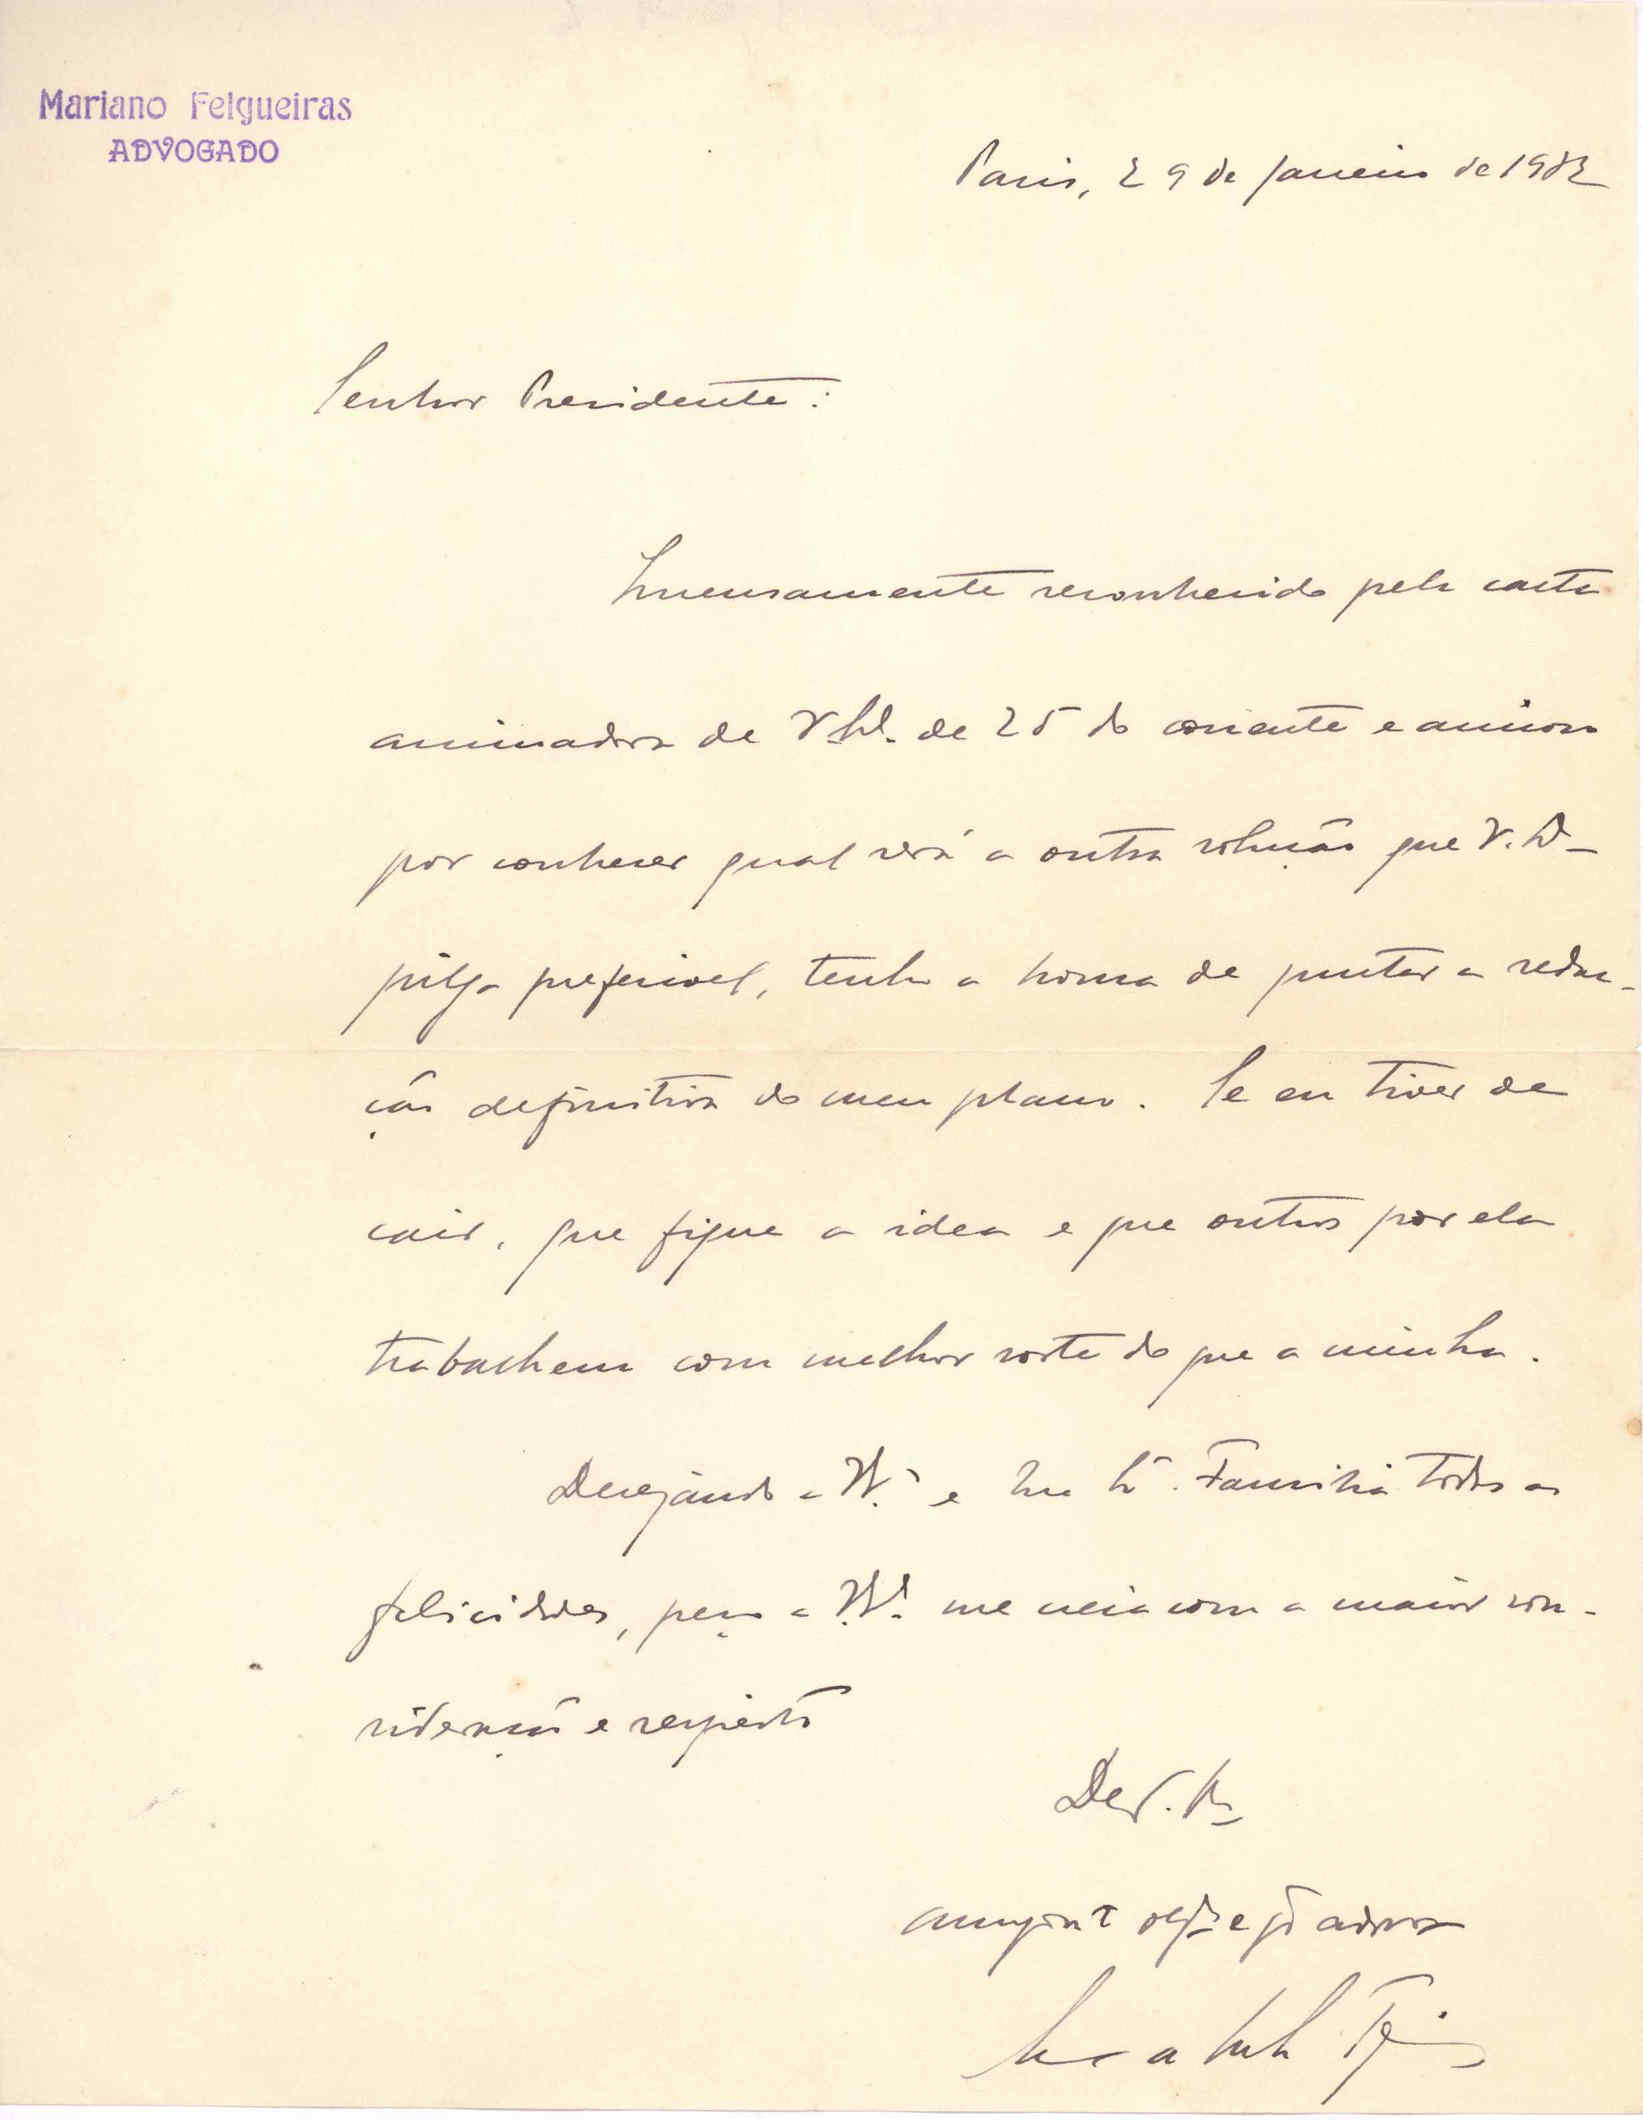 Mariano Felgueiras
ADVOGADO
Paris, 29 de Janeiro de 1932
Senhor Presidente:
Imensamente reconhecido pela carta
animadora de V. de 25 do corrente e ancioso
por conhecer qual será a outra solução que V.
julga preferivel, tenho a honra de juntar a redac-
ção definitiva do meu plano. Se eu tiver de
cair, que fique a idea e que outros por ela
trabalhem com melhor sorte do que a minha.
Desejando a V. e Sua Familia todas as
felicidades, peço a V. me creia com a maior con-
sideração e respeito
De V.